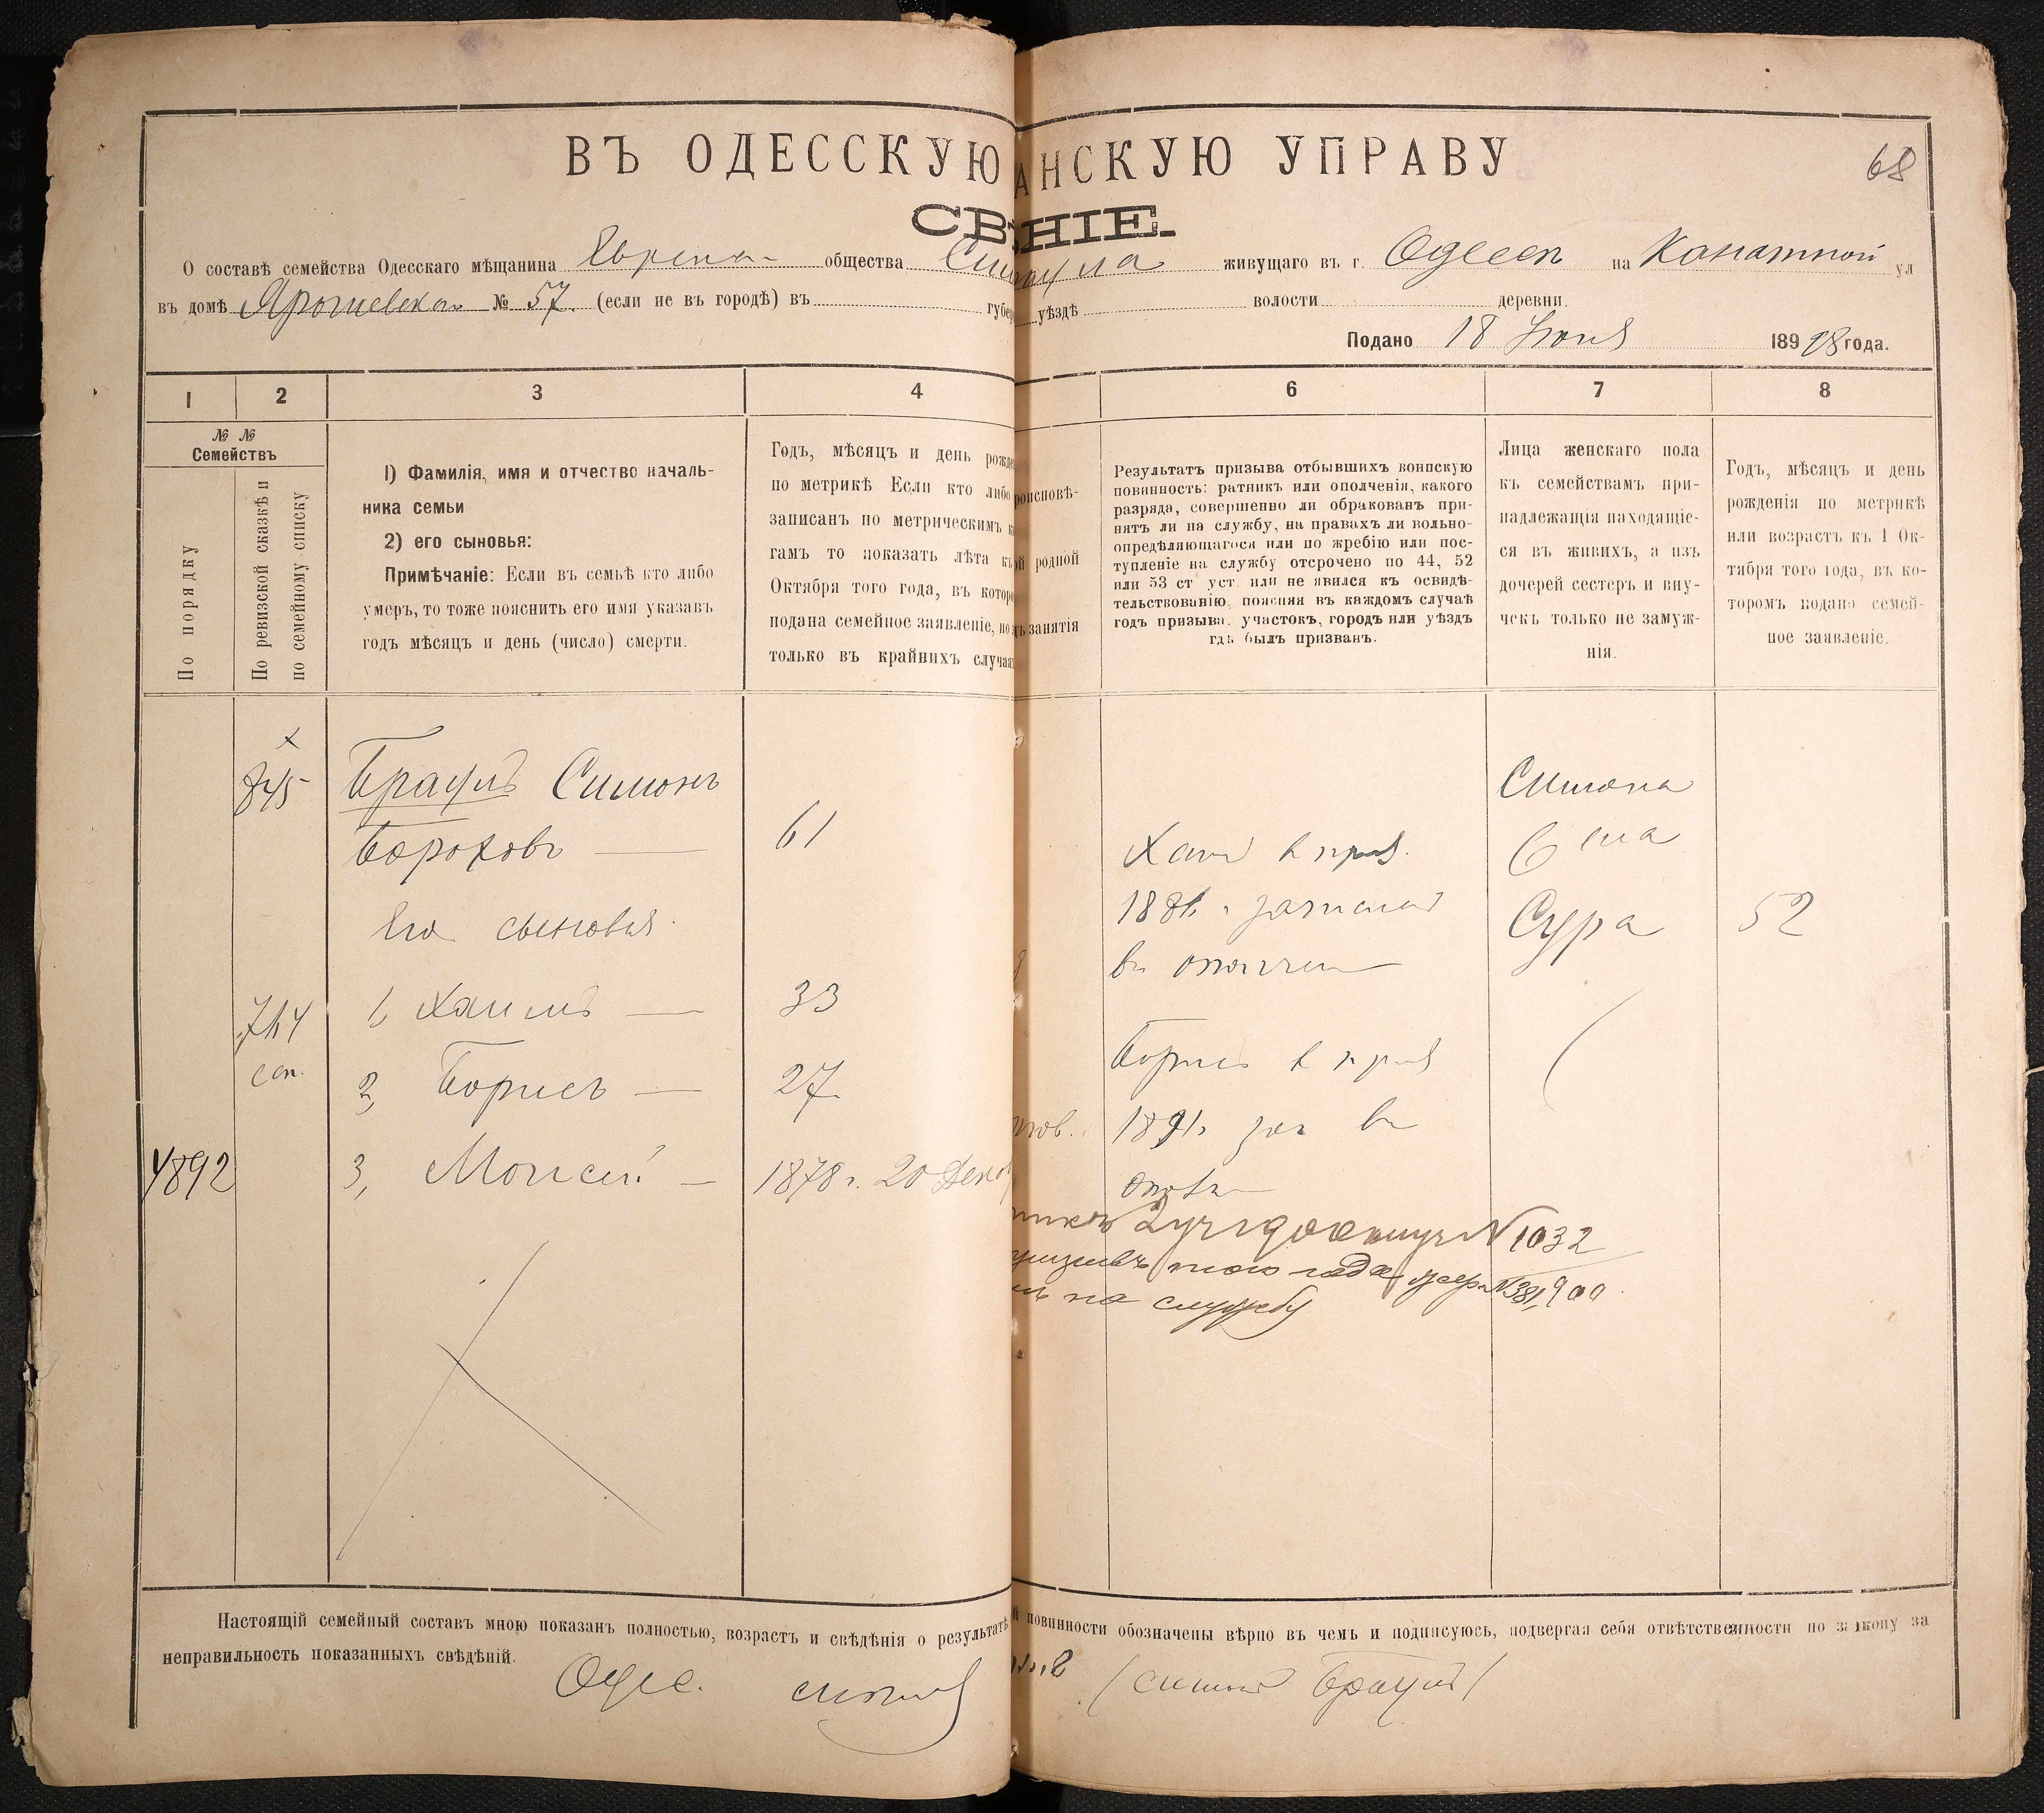 ВЪ ОДЕССКУЮ АНСКУЮ УПРАВУ
68
СВѢНІЕ.
О составѣ семейства Одесскаго мѣщанина Еврея общества живущаго въ г. Одессѣ на Канатной ул
въ домѣ № 57. (если не въ городѣ) въ губер уѣздѣ волости деревни.
Подано 18 Іюня 189 98 года.
1 2 3 4 6 7 8
№ №
Семействъ
По порядку
По ревизской сказкѣ и
по семейному списку
1) Фамилія, имя и отчество началь-
ника семьи
2) его сыновья:
Примѣчаніе: Если въ семьѣ кто либо
умеръ, то тоже пояснить его имя указавъ
годъ мѣсяцъ и день (число) смерти.
Годъ, мѣсяцъ и день рожде
по метрикѣ Если кто либо
записанъ по метрическимъ к
гамъ то показать лѣта къ
Октября того года, въ которо
подана семейное заявленіе, но
только въ крайнихъ случая
роисповѣ-
й родной
ъ занятія
Результатъ призыва отбывшихъ воинскую
повинность: ратникъ или ополченія, какого
разряда, совершенно ли обракованъ при-
нятъ ли на службу, на правахъ ли вольно-
опредѣляющагося или по жребію или пос-
тупленіе на службу отсрочено по 44, 52
или 53 ст уст. или не явился къ освидѣ-
тельствованію, поясняя въ каждомъ случаѣ
годъ призыва, участокъ, городъ или уѣздъ
гдѣ былъ призванъ.
Лица женскаго пола
къ семействамъ при-
надлежащія находящіе-
ся въ живихъ, а изъ
дочерей сестеръ и вну-
чекъ только не замуж-
нія.
Годъ, мѣсяцъ и день
рожденія по метрикѣ
или возрастъ къ 1 Ок-
тября того года, въ ко-
торомъ подано семей-
ное заявленіе.
845 Браулъ Симонъ
Бороховъ 61
Его сыновья
714 1, Хаимъ 33
2, Борисъ 27
4892 3, Моисей 1878 г. 20 Дека
Хаим в приз.
188
в
Борисъ в приз
1891 г. зач в
№ 1032
призывъ того года №381, 900
на службу
Симона
жена
Сура 52
Настоящій семейный составъ мною показанъ полностью, возрастъ и свѣдѣнія о результатѣ й повинности обозначены вѣрно въ чемъ и подписуюсь, подвергая себя отвѣтственности по закону за
неправильность показанныхъ свѣдѣній.
(Симон Браулъ)